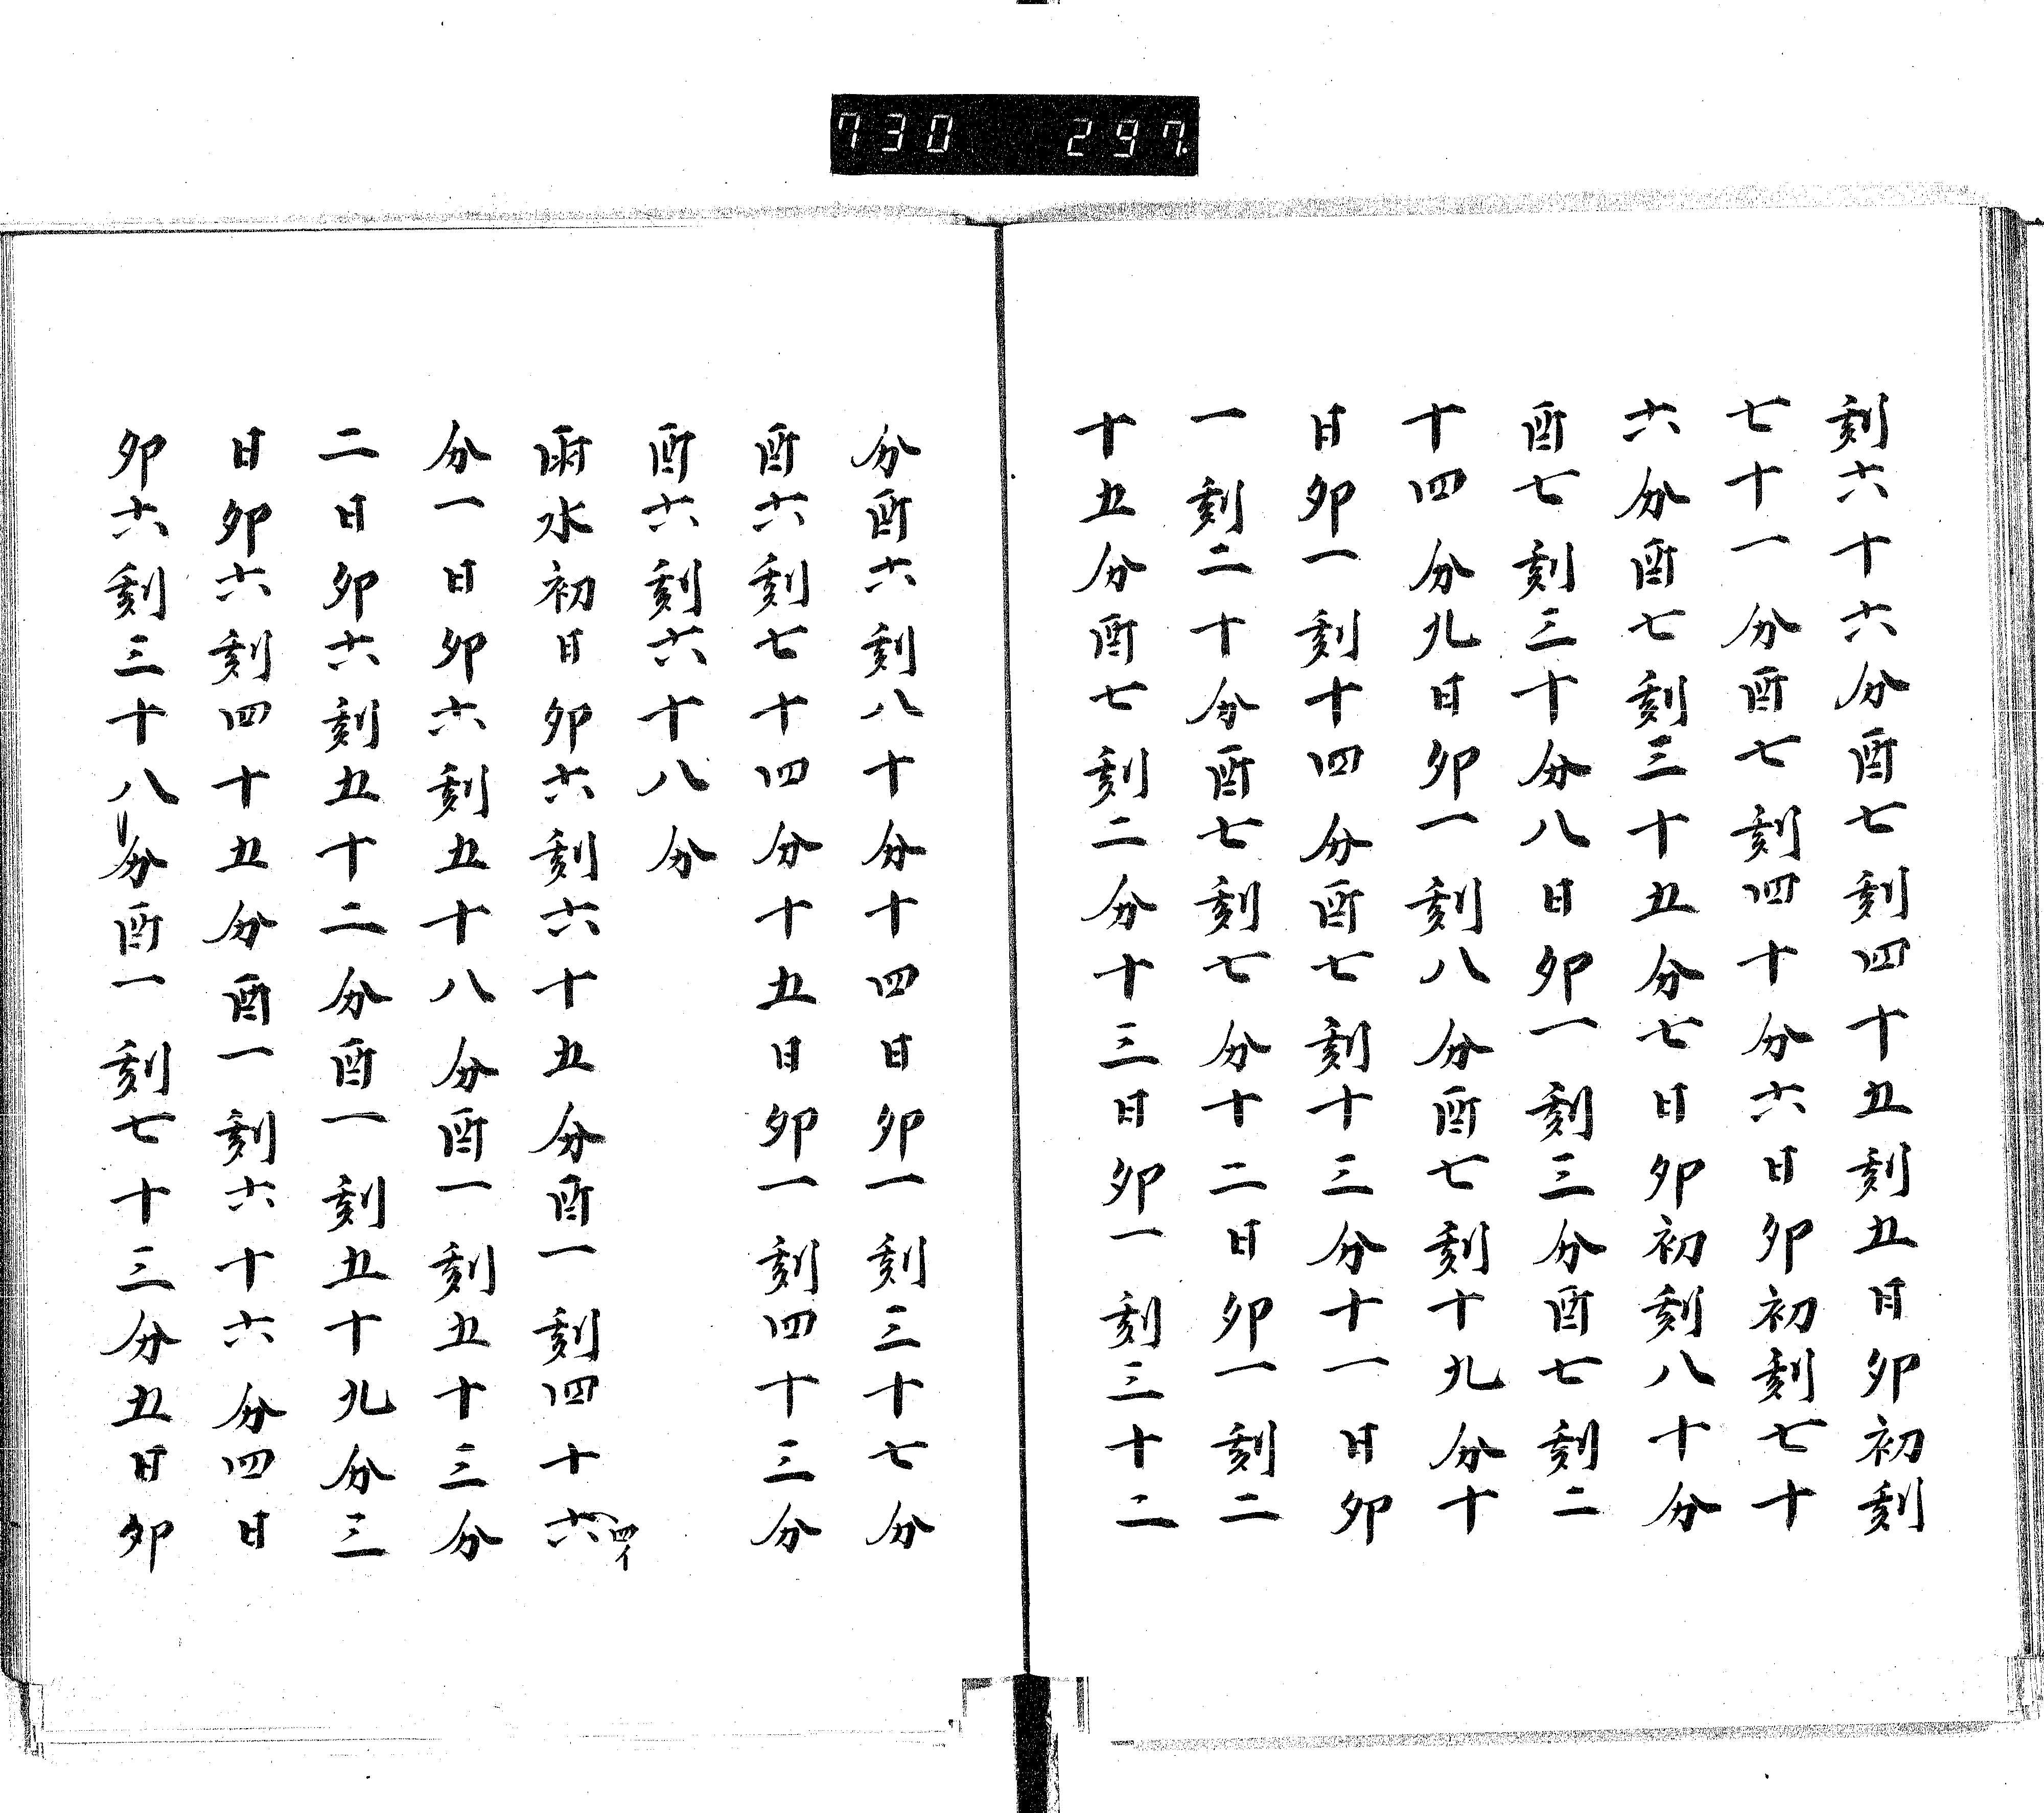 730 297
刻六十六分酉七刻四十五刻五日卯初刻
七十一分酉七刻四十分六日卯初刻七十
六分酉七刻三十五分七日卯初刻八十分
酉七刻三十分八日卯一刻三分酉七刻二
十四分九日卯一刻八分酉七刻十九分十
日卯一刻十四分酉七刻十三分十一日卯
一刻二十分酉七刻七分十二日卯一刻二
十五分酉七刻二分十三日卯一刻三十二
分酉六刻八十分十四日卯一刻三十七分
酉六刻七十四分十五日卯一刻四十三分
酉六刻六十八分
雨水初日卯六刻六十五分酉一刻四十六
四イ
分一日卯六刻五十八分酉一刻五十三分
二日卯六刻五十二分酉一刻五十九分三
日卯六刻四十五分酉一刻六十六分四日
卯六刻三十八分酉一刻七十三分五日卯